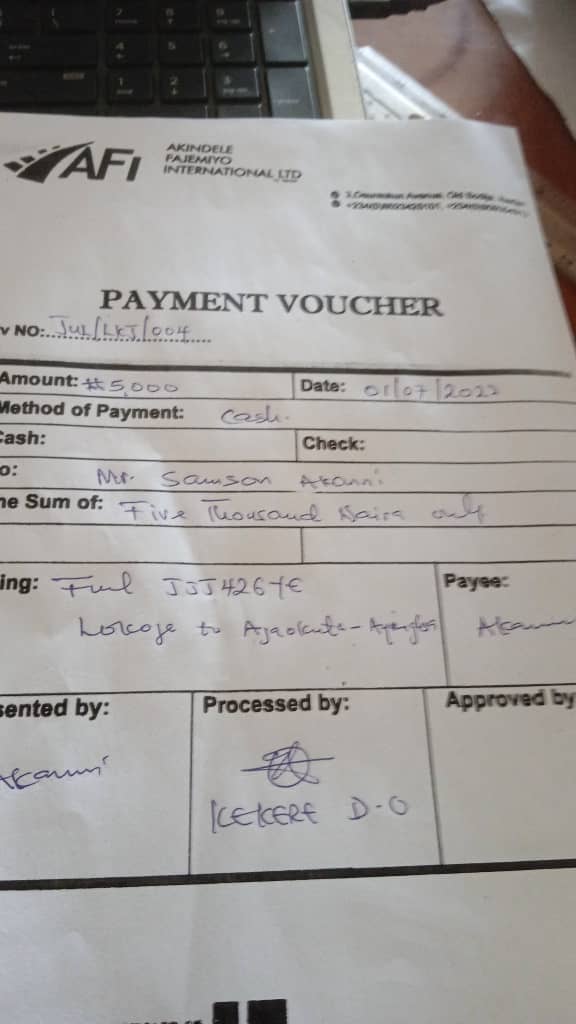 AFI
AKINDELE
FAJEMIYO
INTERNATIONAL LTD
PAYMENT VOUCHER
v NO: JUL/LKJ/004
Amount: ₦5,000 Date: 01/07/2022
Method of Payment: Cash.
Cash: Check:
o: Mr. Samson Akanni
ne Sum of: Five Thousand Naira only
ing: Fuel JJJ426YE Payee:
Lokoja to Ajaokuta- Akanni
sented by: Processed by: Approved by
Akanni
KEKERE D-O